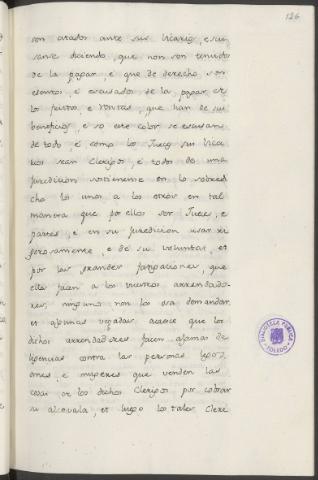 126
son citados ante sus Vicarios, e scu-
sanse diciendo, que non son tenudos
de la pagar, e que de derecho son
esentos, e escusados de la pagar de
lo frutos, e rentas, que han de sus
beneficios, e so este color se escusan
de todo, e como los Jueces sus Vica
rios sean Clerigos, e todos de una
juredicion sostienense en lo sobredi
cho los unos a los otros en tal
manera que por ellos ser Jueces, e
partes, e en su juredicion usar ri
gorosamente, e de su voluntat, et
por las grandes fatigaciones, que
ellos facen a los vuestros arrendado-
res, ninguno non los osa demandar,
et algunas vegadas acaece que los
dichos arrendadores facen algunas de
ligencias contra las personas legos,
omes, e mugeres que venden las
cosas de los dichos Clerigos por cobrar
su alcavala, et luego los tales Cleri
BIBLIOTECA PUBLICA
TOLEDO